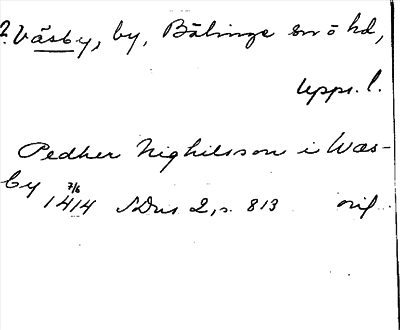 2. Väsby, by, Bälinge sn o hd,
Upps. l.
Pedher Nighilsson i Wæs-
by 7/6
1414 SDns 2, s. 813 orig.